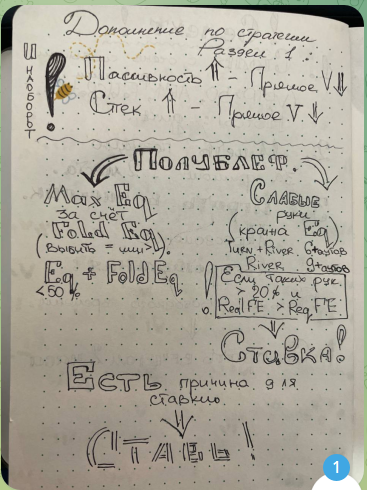 Дополнение по стратегии
Раздел 1:
И НАОБОРОТ
!
Пассивность ⇑ - Прямое V ⇓
Стек ⇑ - Прямое V ⇓
ПОЛУБЛЕФ.
Max Eq
За счёт
Fold Eq
(выбить = или >).
Eq + Fold Eq
< 50%
СЛАБЫЕ
руки
(кража Eq)
Turn + River 6 аутов
River 9 аутов
! Если таких рук
> 20% и
Real FE > Req FE
СТАВКА!
ЕСТЬ причина для
ставки
СТАВЬ!
1